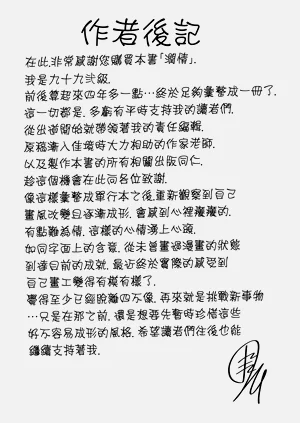 作者後記
在此,非常感謝您購買本書「溺情」.
我是九十九弐級.
前後算起來四年多一點…終於足夠彙整成一冊了.
這一切都是,多虧有平時支持我的讀者們.
從出道開始就帶領著我的責任編輯.
原諒漸入佳境時大力相助的作家老師.
以及製作本書的所有相關出版同仁.
趁這個機會在此向各位致謝.
像這樣彙整成單行本之後,重新觀察到自己
畫風改變日益漸成形,會感到心裡癢癢的.
有點難為情,這樣的心情湧上心頭.
如同字面上的含意,從未曾畫過漫畫的狀態
到參目前的成就,最近終於實際的感受到
自己畫工變得有模有樣了.
覺得至少已經脫離四不像,再來就是挑戰新事物
…只是在那之前,還是我要先普時珍惜這些
好不容易成形的風格,希望讀者們往後也能
繼續支持著我.